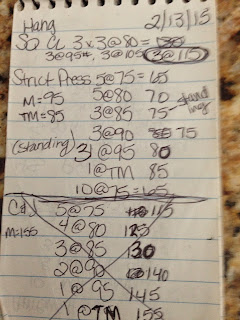 Hang 2/13/15
SQ CL 3x3@80=
3@95*, 3@105 3@115
Strict Press 5@75=65
M=95 5@80 70
TM=85 3@85 75
3@90 75
(standing) 3 1@95 80
1@TM 85
10@75=65
C&J 5@75 115
M=155 4@80 125
3@85 130
2@90 140
1@95 145
1@TM 155